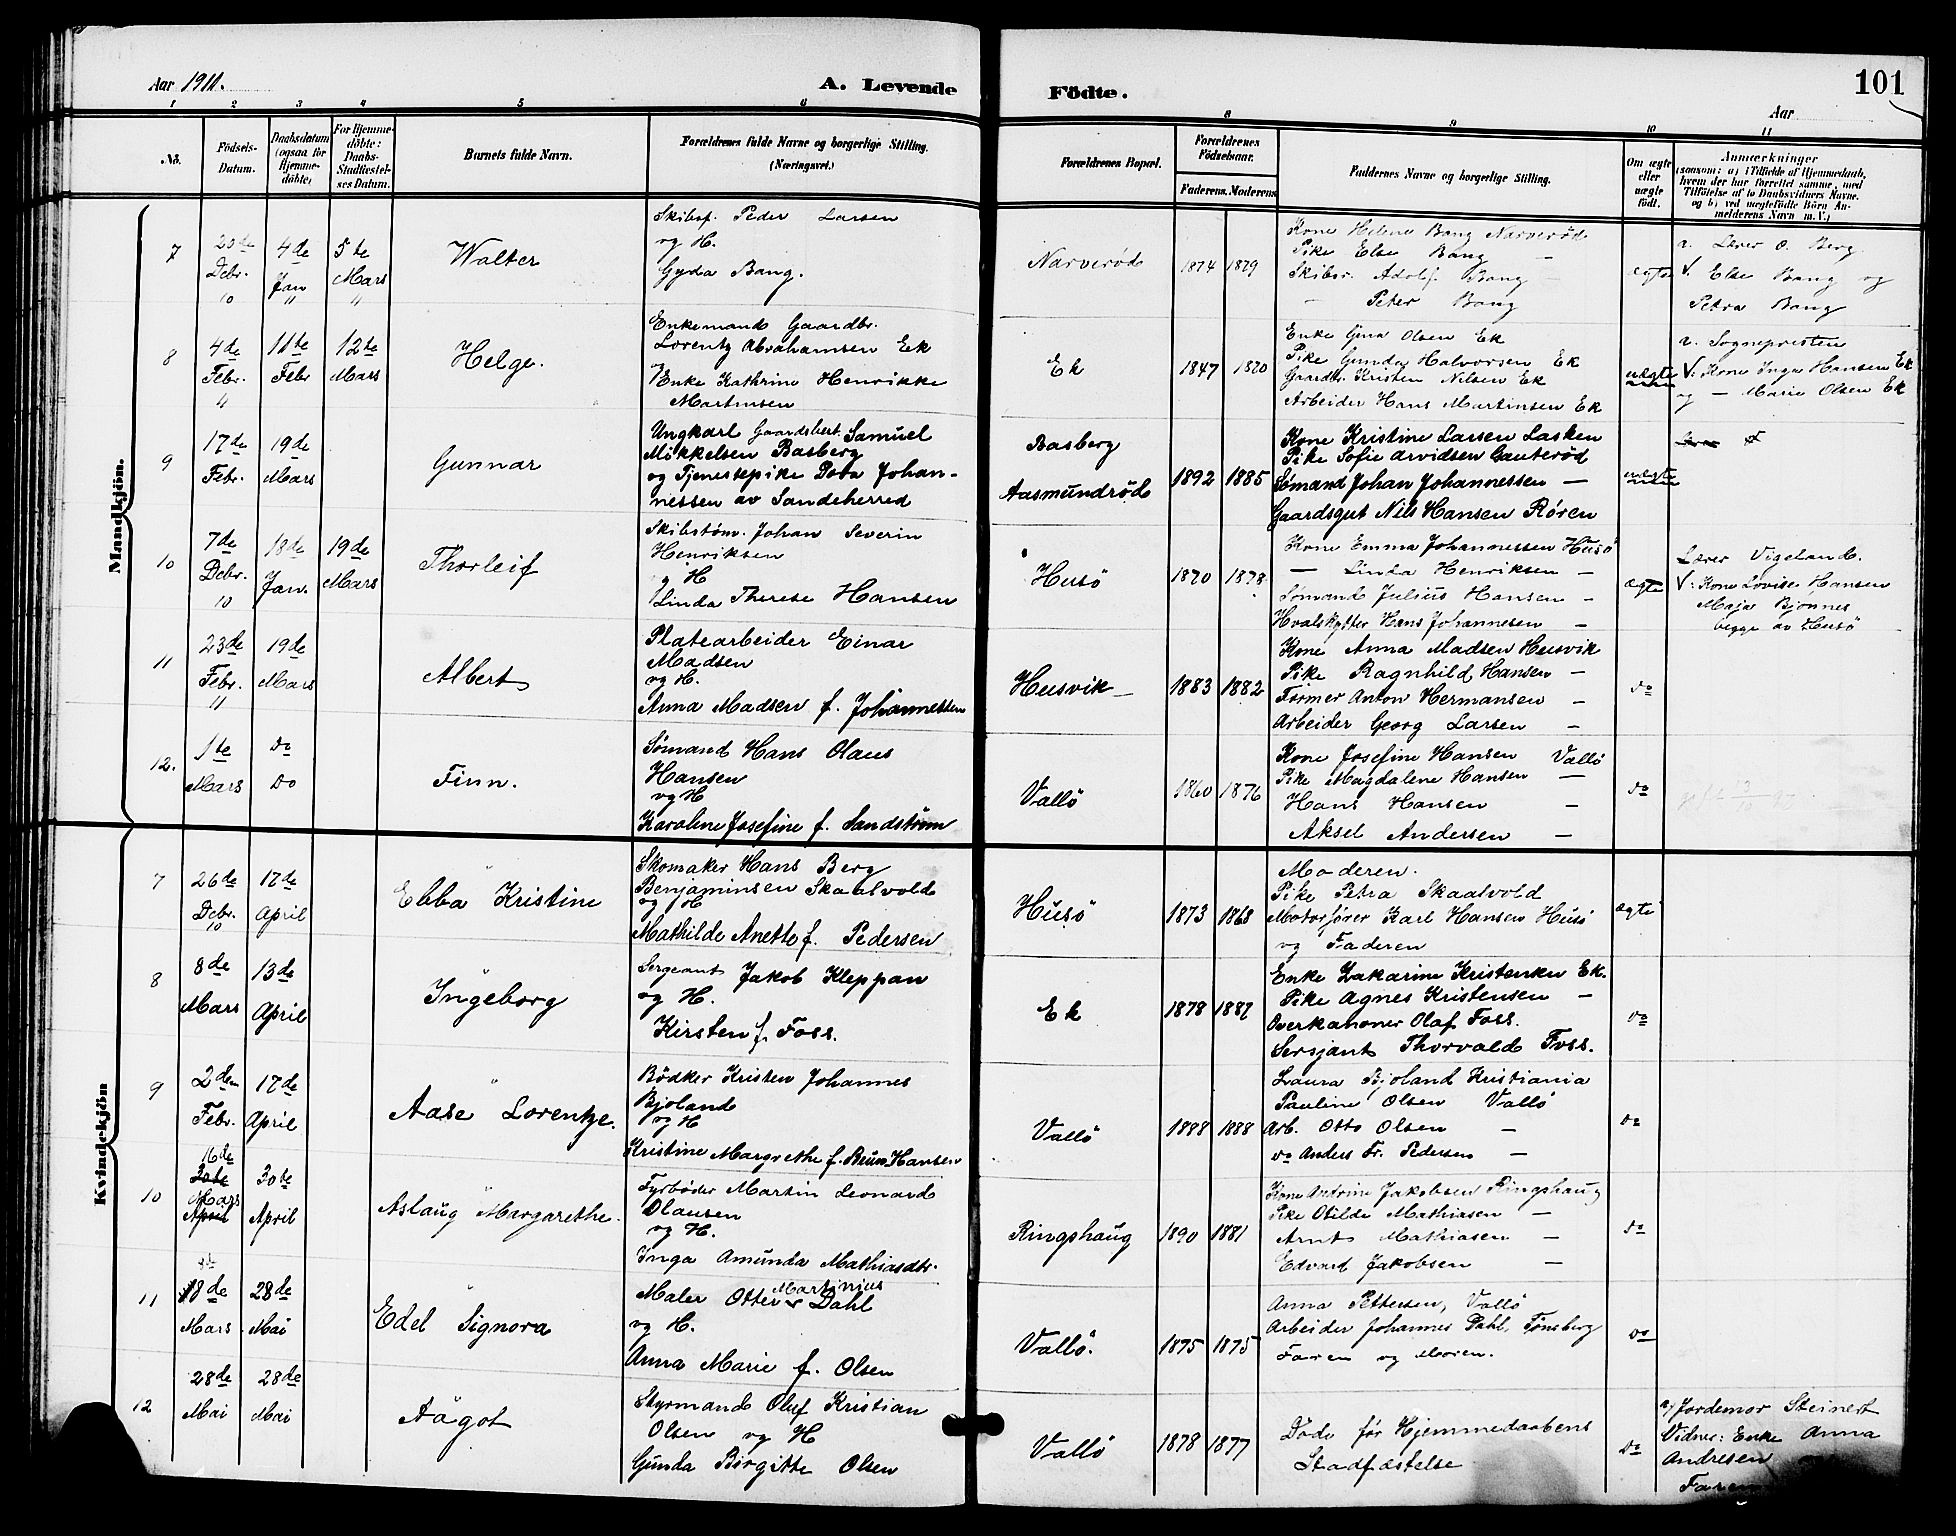 Aar 1911.
A. Levende
Födte.
101
Aar
1 2 3 4 5 6
8 9 10 11
No.
Födsels-
Datum.
Daabsdatum
(ogsaa for
Hjemme-
döbte)
For Hjemme-
döbte:
Daabs-
Stadfæstel-
ses Datum.
Barnets fulde Navn.
Forældrenes fulde Navne og borgerlige Stilling.
(Næringsvei.)
Forældrenes Bopæl.
Forældrenes
Födselsaar.
Faderens. Moderens
Faddernes Navne og borgerlige Stilling.
Om ægte
eller
uægte
födt.
Anmærkninger
(saasom: a) i Tilfælde af Hjemmedaab,
hvem der har forrettet samme, med
Tilføielse af to Daabsvidners Navne,
og b) ved uægtefödte Börn An-
melderens Navn m. V.)
Mandkjön.
7
20de
Debr.
10
4de
Jan
11
5te
Mars
11
Walter
Skibsf. Peder Larsen
og H.
Gyda Bang.
Narveröd
1874 1879
Kone Helene Bang Narveröd
Pike Else Bang —
Skibsr. Adolf Bang —
— Peter Bang
ægte
a. Lærer O. Berg
V. Else Bang og
Petra Bang
8
4de
Febr.
11
11te
Febr
12te
Mars
Helge.
Enkemand Gaardbr.
Lorentz Abrahamsen Ek
Enke Kathrine Henrikke
Martinsen
Ek
1847 1870
Enke Gina Olsen Ek
Pike Gunda Halvorsen Ek
Gaardbr. Kristen Nilsen Ek
Arbeider Hans Martinsen Ek
uægte
a. Sognepresten
V: Kone Inga Hansen Ek
og — Marie Olsen Ek
9
17de
Febr.
19de
Mars
Gunnar
Ungkarl Gaardsbest. Samuel
Mikkelsen Basberg
og Tjenestepike Dora Johan-
nessen av Sandeherred
Basberg
Aasmundröd
1892 1885
Kone Kristine Larsen Lasken
Pike Sofie Arvidsen Gauteröd
Sømand Johan Johannessen —
Gaardsgut Nils Hansen Røren
uægte
10
7de
Debr.
10
18de
Jan.
19de
Mars
Thorleif
Skibstøm. Johan Severin
Henriksen
og H
Linda Therese Hansen
Husö
1870 1878
Kone Emma Johannessen Husö
— Linda Henriksen —
Sømand Julius Hansen —
Hvalskytter Hans Johannesen —
ægte
Lærer Vigeland.
V: Kone Lovise Hansen
Maja Bjønnes
begge av Husö
11
23de
Febr.
11
19de
Mars
Albert
Platearbeider Einar
Madsen
og H.
Anna Madsen f. Johannessen
Husvik
1883 1882
Kone Anna Madsen Husvik
Pike Ragnhild Hansen —
Former Anton Hermansen —
Arbeider Georg Larsen —
do
12.
1te
Mars
do
do
Finn.
Sømand Hans Olaus
Hansen
og H
Karoline Josefine f. Sandström
Vallö
1860 1876
Kone Josefine Hansen Vallö
Pike Magdalene Hansen —
Hans Hansen —
Aksel Andersen —
do
Kvindekjön
7
26de
Debr.
10
17de
April
Ebba Kristine
Skomaker Hans Berg
Benjaminsen Skaalvold
og H
Mathilde Anette f. Pedersen
Husö
1873 1868
Moderen.
Pike Petra Skaalvold
Motorfører Karl Hansen Husö
og Faderen
ægte
8
8de
Mars
13de
April
Ingeborg
Sergeant Jakob Kleppan
og H.
Kirsten f. Foss.
Ek
1878
Enke Zakarine Kristensen Ek.
Pike Agnes Kristensen —
Overkanoner Olaf Foss.
Sersjant Thorvald Foss.
do
9
2den
Febr.
17de
April
Aase Lorentze.
Bödker Kristen Johannes
Bjoland
og H
Kristine Margrethe f. Bruu Hansen
Vallö
1888 1888
Laura Bjoland Kristiania
Pauline Olsen Vallö
Arb. Otto Olsen —
do Anders Fr. Pedersen —
do
10
16de
30te
Mars
April
30te
April
Aslaug Margarethe.
Fyrbøder Martin Leonard
Olausen
og H.
Inga Amunda Mathiasdtr.
Ringshaug
1890 1881
Kone Andrine Jakobsen Ringshaug
Pike Otilde Mathiasen —
Arnt Mathiasen —
Edvard Jakobsen —
do
11
18de
Mars
28de
Mai
Edel Signora
Maler Otter Martinius Dahl
og H.
Anna Marie f. Olsen
Vallö.
1875 1875
Anna Pettersen, Vallö
Arbeider Johannes Dahl, Tønsberg
Faren og Moren.
do
12
28de
Mai
28de
Mai
Aagot
Styrmand Oluf Kristian
Olsen og H
Gunda Birgitte Olsen
Vallö
1878 1877
Døde før Hjemmedaabens
Stadfæstelse
do
a) Jordemor Steinert
Vidner: Enke Anna
Andresen
Faren